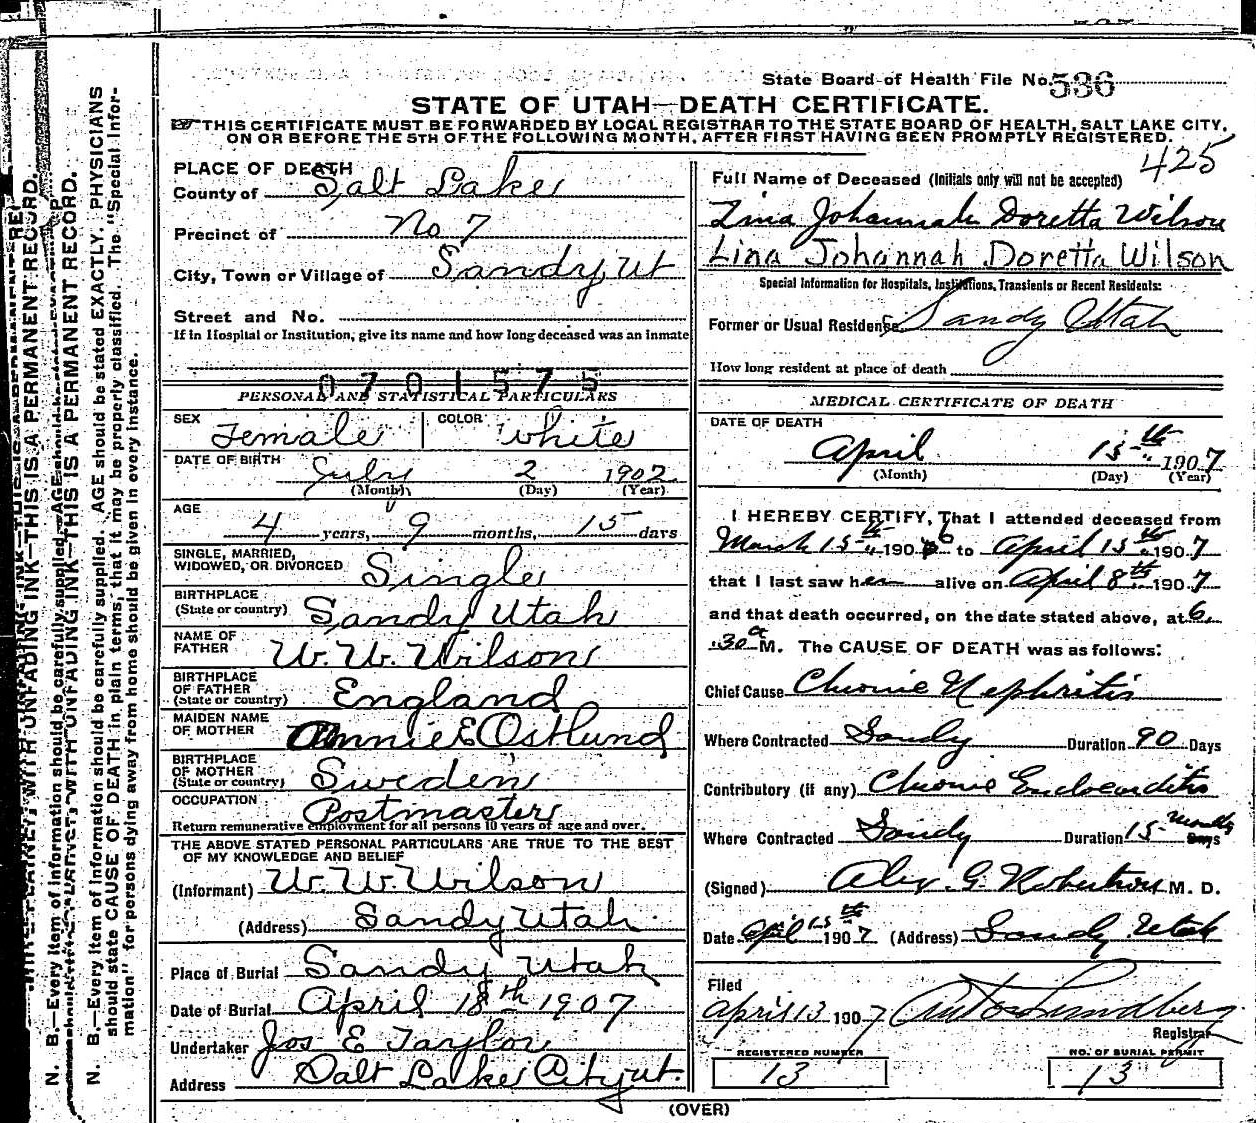 State Board of Health File No. 536
STATE OF UTAH—DEATH CERTIFICATE.
THIS CERTIFICATE MUST BE FORWARDED BY LOCAL REGISTRAR TO THE STATE BOARD OF HEALTH, SALT LAKE CITY,
ON OR BEFORE THE 5TH OF THE FOLLOWING MONTH, AFTER FIRST HAVING BEEN PROMPTLY REGISTERED.
425
PLACE OF DEATH
County of Salt Lake
Precinct of No 7
City, Town or Village of Sandy, Ut
Street and No.
If in Hospital or Institution, give its name and how long deceased was an inmate
0701575
PERSONAL AND STATISTICAL PARTICULARS
SEX Female COLOR White
DATE OF BIRTH July 2 1902
(Month) (Day) (Year)
AGE
4 years, 9 months, 15 days
SINGLE, MARRIED,
WIDOWED, OR DIVORCED Single
BIRTHPLACE
(State or country) Sandy Utah
NAME OF
FATHER W. W. Wilson
BIRTHPLACE
OF FATHER
(State or country) England
MAIDEN NAME
OF MOTHER Annie E Ostlund
BIRTHPLACE
OF MOTHER
(State or country) Sweden
OCCUPATION Postmaster
Return remunerative employment for all persons 10 years of age and over.
THE ABOVE STATED PERSONAL PARTICULARS ARE TRUE TO THE BEST
OF MY KNOWLEDGE AND BELIEF
(Informant) W. W. Wilson
(Address) Sandy Utah.
Place of Burial Sandy Utah
Date of Burial April 18th 1907
Undertaker Jos E Taylor
Address Salt Lake City ut.
Full Name of Deceased (Initials only will not be accepted)
Lina Johannah Doretta Wilson
Lina Johannah Doretta Wilson
Special Information for Hospitals, Institutions, Transients or Recent Residents:
Former or Usual Residence Sandy Utah
How long resident at place of death
MEDICAL CERTIFICATE OF DEATH
DATE OF DEATH
April 15th 1907
(Month) (Day) (Year)
I HEREBY CERTIFY, That I attended deceased from
March 15th 1906 to April 15th 1907
that I last saw her alive on April 8th 1907
and that death occurred, on the date stated above, at 6.
.30 a M. The CAUSE OF DEATH was as follows:
Chief Cause Chronic Nephritis
Where Contracted Sandy Duration 90 Days
Contributory (if any) Chronic Endocarditis
Where Contracted Sandy Duration 15 months Days
(Signed) Alex. G. Robertson M. D.
Date April 15th 1907 (Address) Sandy Utah
Filed
April 13 1907 Lundberg
Registrar
REGISTERED NUMBER
13
NO. OF BURIAL PERMIT
13
(OVER)
N. B.—Every item of information should be carefully supplied. AGE should be stated EXACTLY. PHYSICIANS
should state CAUSE OF DEATH in plain terms, that it may be properly classified. The "Special Infor-
mation" for persons dying away from home should be given in every instance.